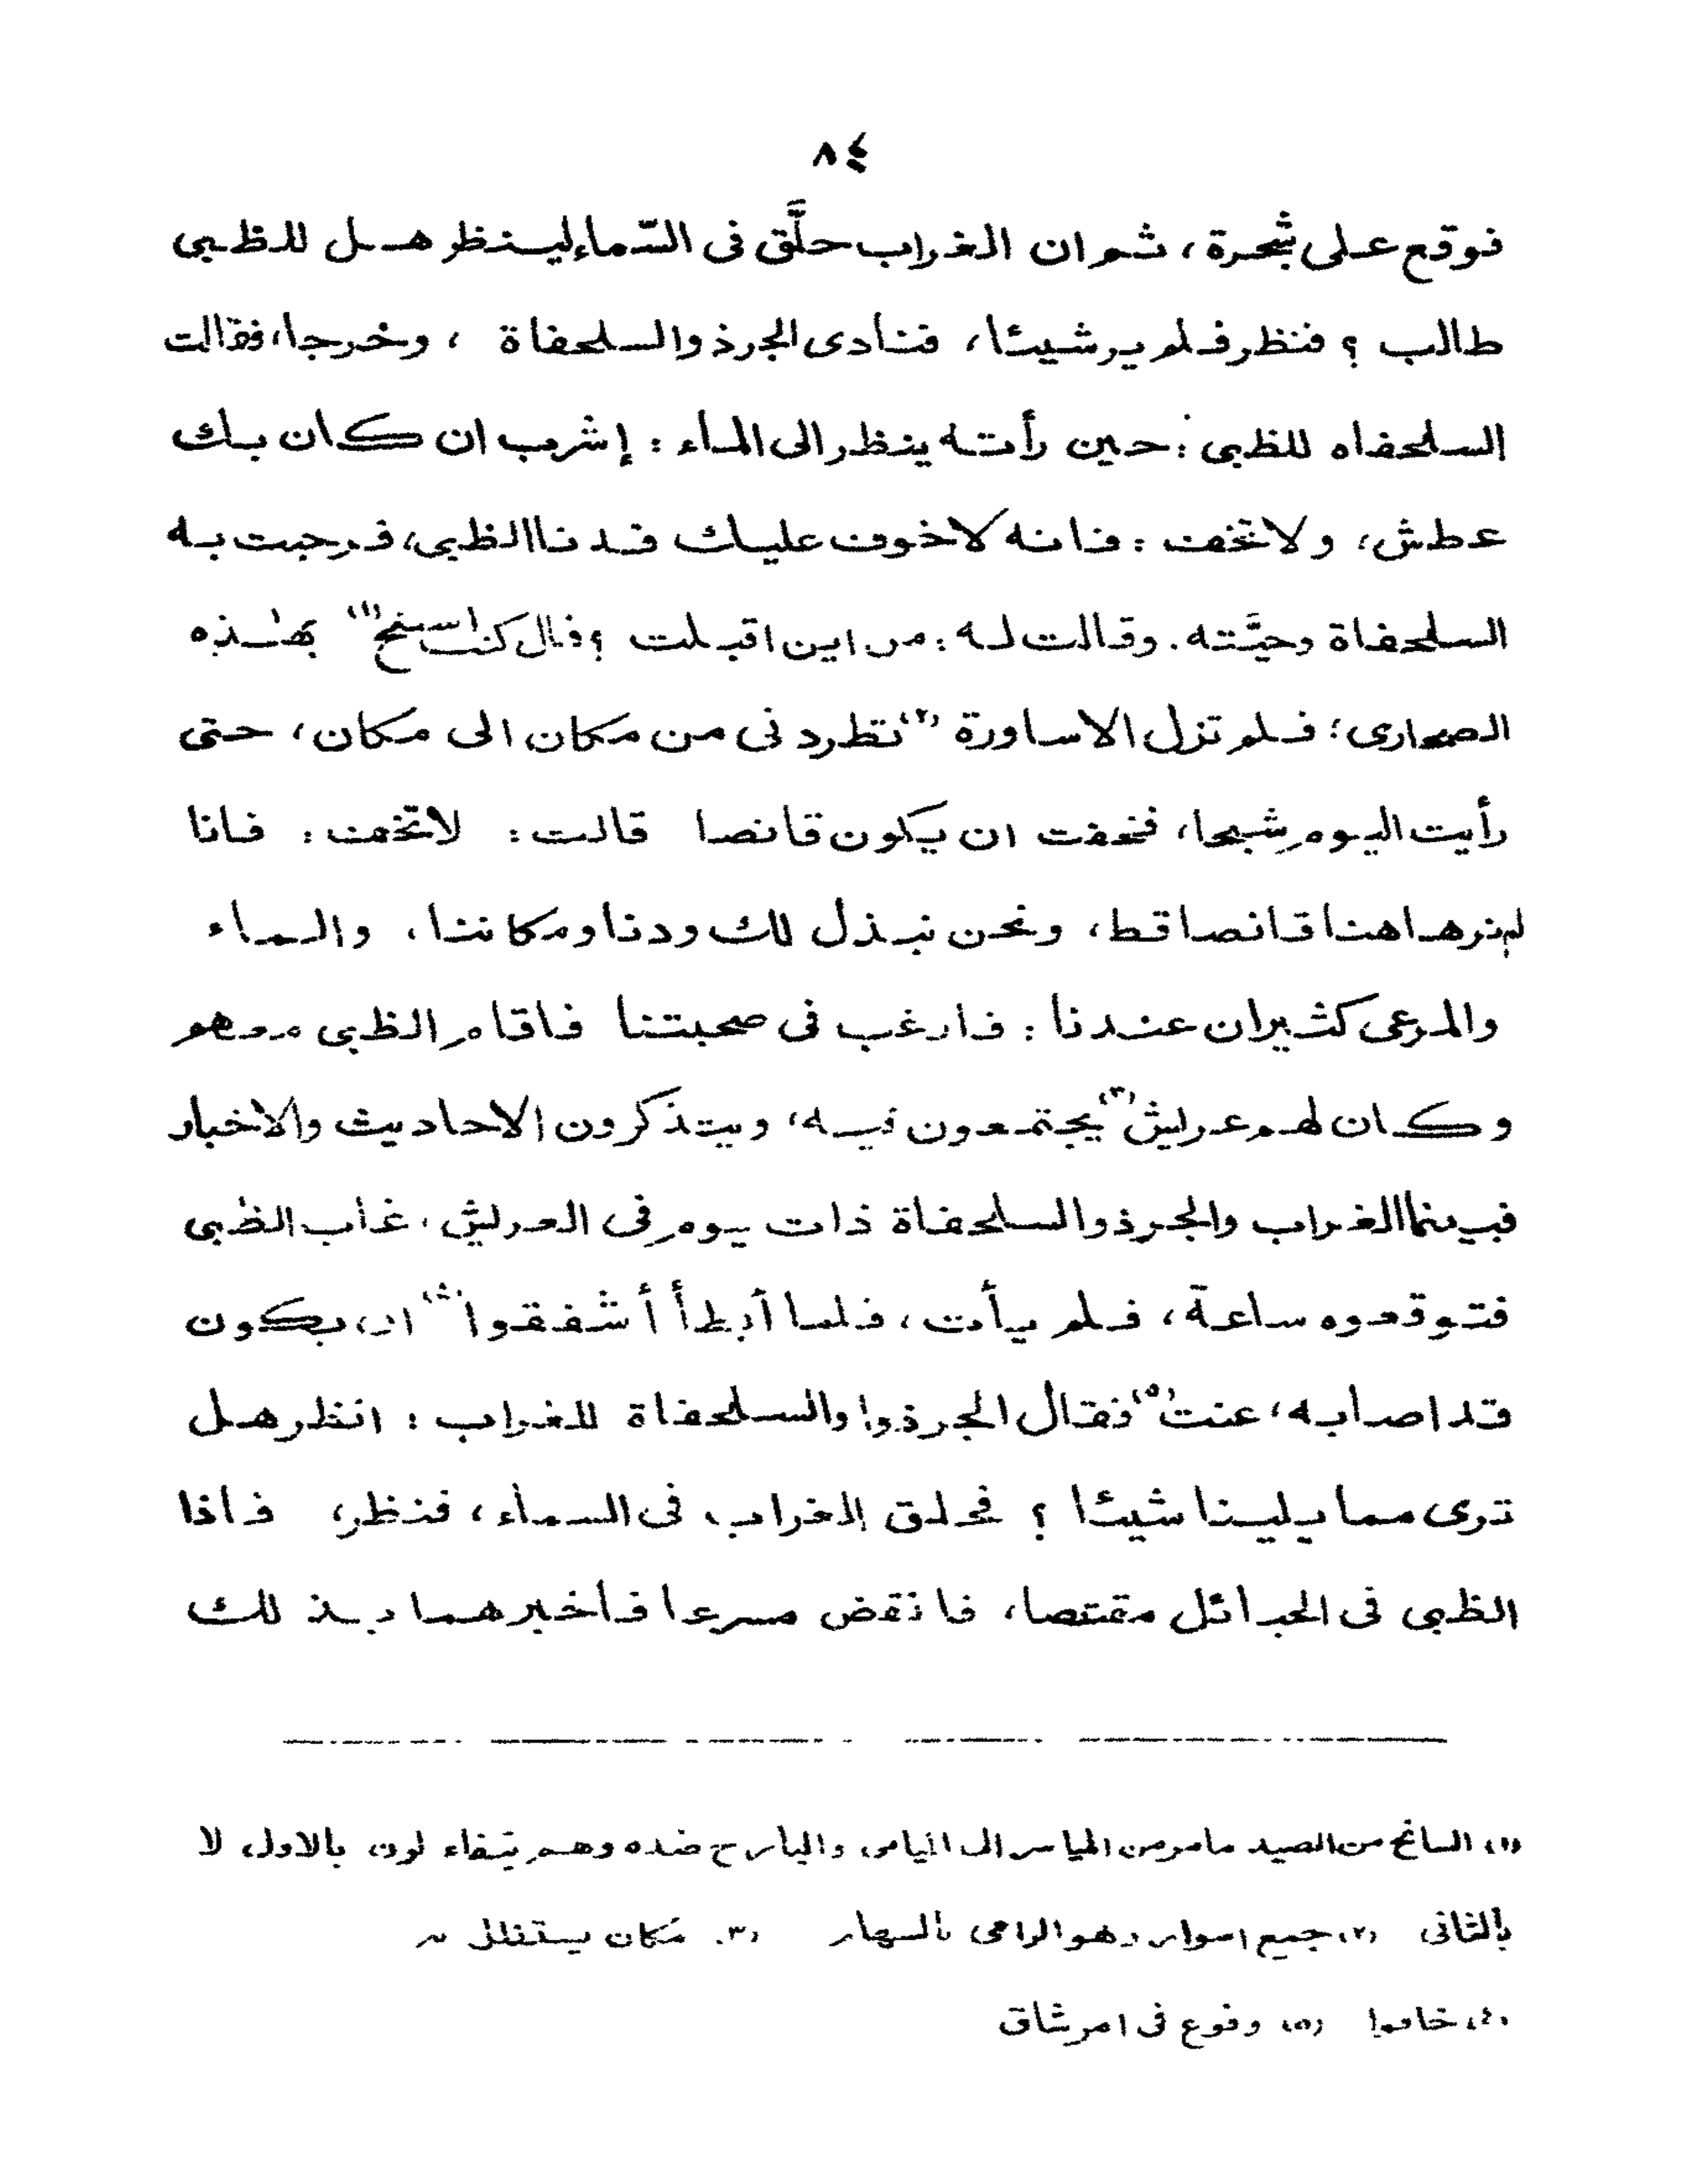 ٨٤
فوقع على شجرة، ثم ان الغراب حلَّق فى السّماء لينظر هل للظبى
طالب ؟ فنظر فلم ير شيئا، فنادى الجرذ والسلحفاة ، وخرجا، فقالت
السلحفاه للظبى : حين رأته ينظر الى الماء : إشرب ان كان بك
عطش، ولا تخف : فانه لا خوف عليك فدنا الظبى، فرحبت به
السلحفاة وحيَّته. وقالت له : من اين اقبلت ؟ فال كنت اسنح (١) بهذه
الصحارى؛ فلم تزل الاساورة (٢) تطردنى من مكان الى مكان، حتى
رأيت اليوم شبحا، فخفت ان يكون قانصا قالت : لا تخف : فانا
لم نرهاهنا قانصا قط، ونحن نبذل لك ودنا ومكاننا، والماء
والمرعى كثيران عندنا : فارغب فى صحبتنا فاقام الظبى معهم
وكان لهم عريش (٣) يجتمعون فيه، ويتذكرون الاحاديث والاخبار
فبينما الغراب والجرذ والسلحفاة ذات يوم فى العريش، غاب الظبى
فتوقعوه ساعة، فلم يأت، فلما أبطأ أشفقوا (٤) ان يكون
قد اصابه، عنت (٥) فقال الجرذ والسلحفاة للغراب : انظر هل
ترى مما يلينا شيئا ؟ فحلق الغراب فى السماء، فنظر، فاذا
الظبى فى الحبائل مقتصا، فانقض مسرعا فأخبرهما بذلك
(١) السانح من الصيد مامر من المياسر الى الميامن والبارح ضده وهم يتفاءلون بالاول لا
بالثانى (٢) جمع اسوار وهو الرامى بالسهار (٣) مكان يستظل به
(٤) خافوا (٥) وفوع فى امر شاق